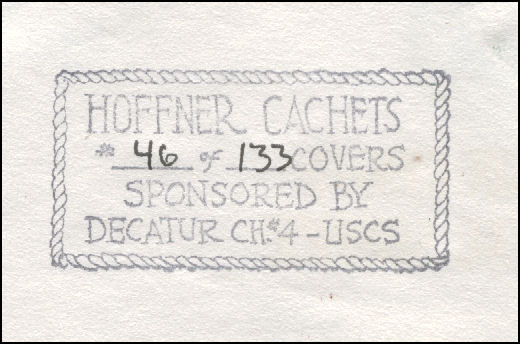 HOFFNER CACHETS
# 46 of 133 COVERS
SPONSORED BY
DECATUR CH.#4-USCS